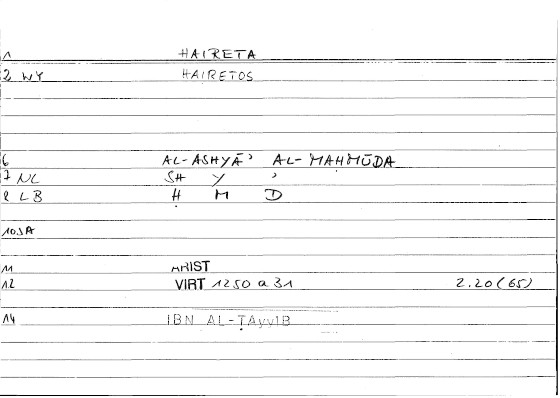 1 HAIRETA
2 WY HAIRETOS
6 AL-ASHYĀʾ AL-MAḤMŪDA
7 NL SH Y ʾ
8 LB Ḥ M D
10JA
11 ARIST
12 VIRT 1250 a 31 2.20 (65)
14 IBN AL-ṬAyyIB